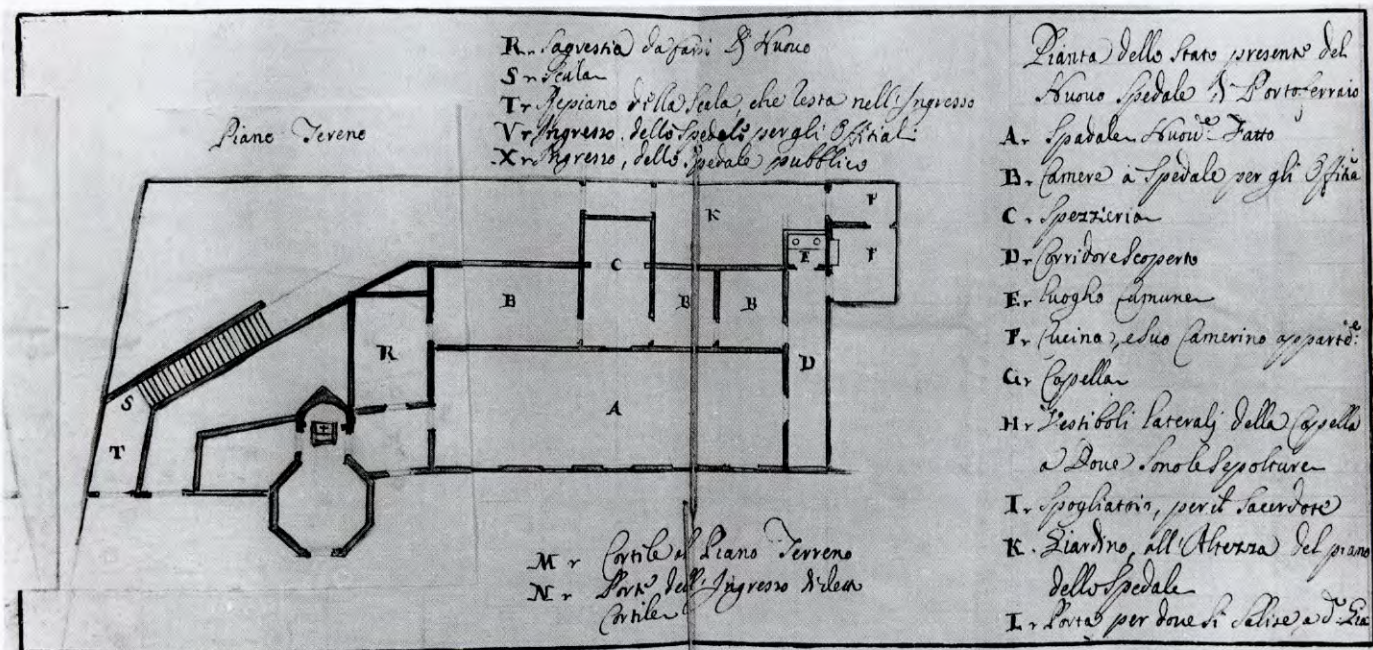 Piano Tereno
R. Sagrestia da farsi di Nuovo
S. Scala
T. Repiano della Scala, che resta nell'Ingresso
V. Ingresso dello Spedale per gli Offitiali
X. Ingresso, dello Spedale pubblico
Pianta dello Stato presente del
Nuovo Spedale di Portoferraio
A. Spadale Nuov.e Fatto
B. Camere a Spedale per gli
C. Spezieria
D. Corridore Scoperto
E. Luogho Comune
F. Cucina, e suo Camerino
G. Capella
H. Vestiboli laterali della Capella
a Dove Sono le Sepolture
I. Spogliatoio, per il Sacerdote
K. Giardino, all'Altezza del piano
dello Spedale
L. Porta per dove si Salise a d.
M. Cortile al Piano Terreno
N. Porte dell'Ingresso di detto
Cortile
K
F
F
E
C
B
B
B
D
R
A
S
T